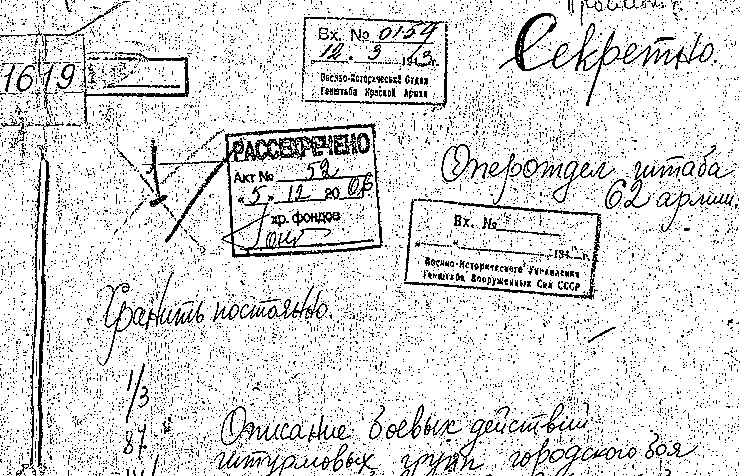 Вх. № 0154
12. 3 1943 г.
Военно-Исторический Отдел
Генштаба Красной Армии
Секретно.
1619
РАССЕКРЕЧЕНО
Акт № 52
"5" 12 20 г.
хр. фондов
Оперотдел штаба
62 армии.
Вх. №
194 г.
Военно-Исторического Управления
Генштаба Вооруженных Сил СССР
Хранить постоянно.
1/3
87
Описание боевых действий
штурмовых групп городского боя